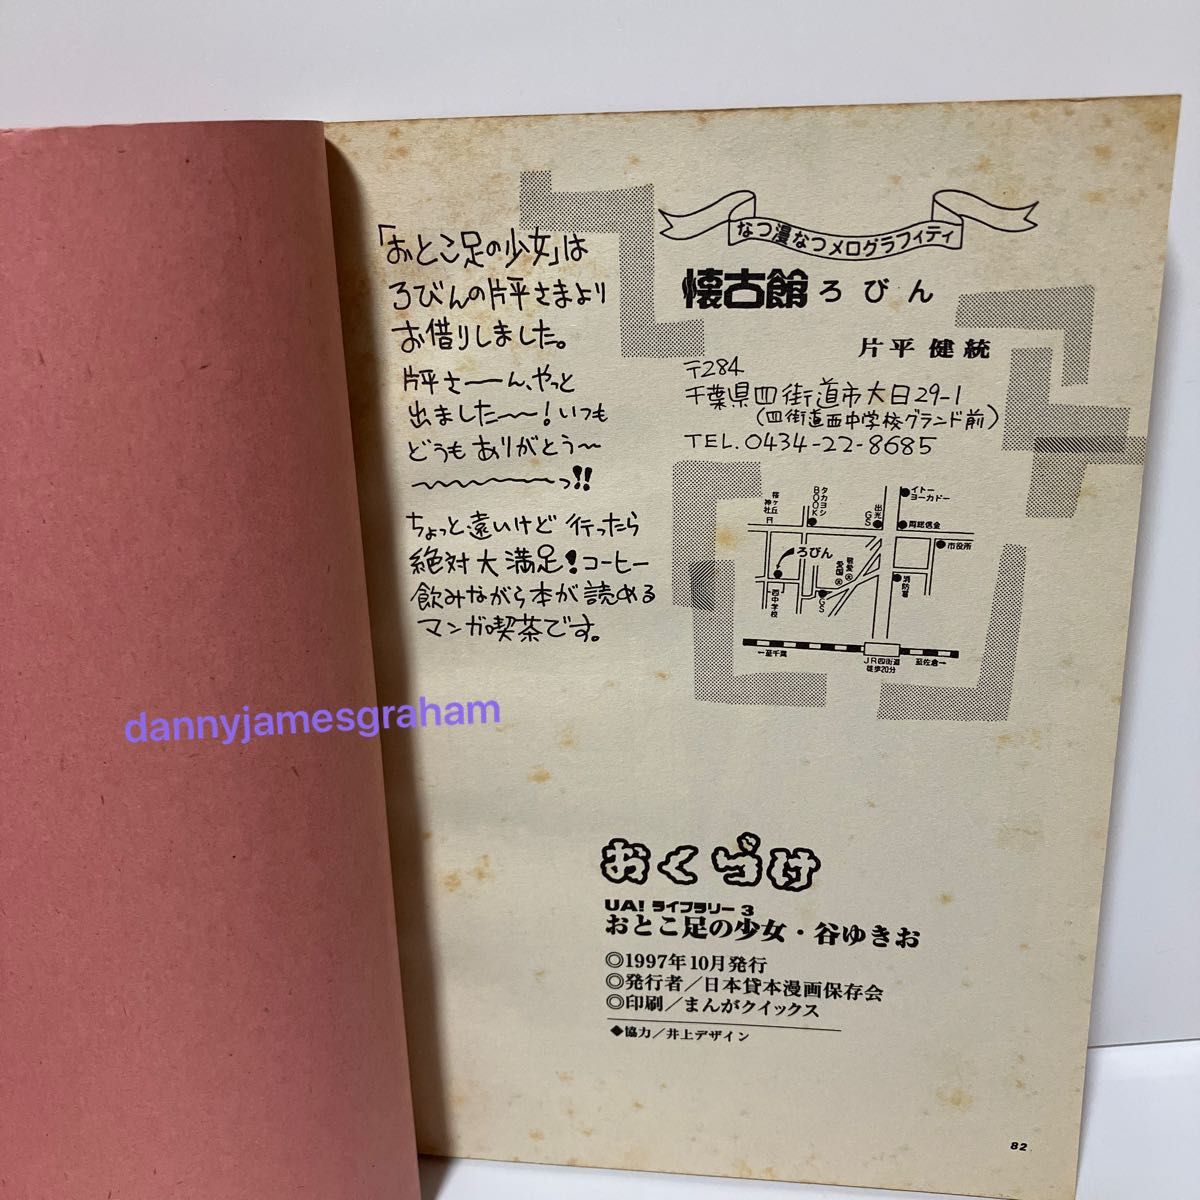 「おとこ足の少女」は
ろびんの片平さまより
お借りしました。
片平さーーん、やっと
出ました〜〜！いつも
どうもありがとう〜
〜〜〜〜〜〜っ!!
ちょっと遠いけど 行ったら
絶対大満足！コーヒー
飲みながら本が読める
マンガ喫茶です。
なつ漫なつメログラフィティ
懐古館ろびん
片平健統
〒284
千葉県四街道市大日29-1
(四街道西中学校グランド前)
TEL.0434-22-8685
桜ヶ丘神社
タカヨシBOOK
出光GS
イトーヨーカドー
両総信金
市役所
ろびん
愛国
敬愛
消防署
西中学校
GS
←至千葉
JR四街道
徒歩20分
至佐倉→
dannyjamesgraham
おくづけ
UA! ライブラリー 3
おとこ足の少女・谷ゆきお
◎1997年10月発行
◎発行者／日本貸本漫画保存会
◎印刷／まんがクイックス
◆協力／井上デザイン
82